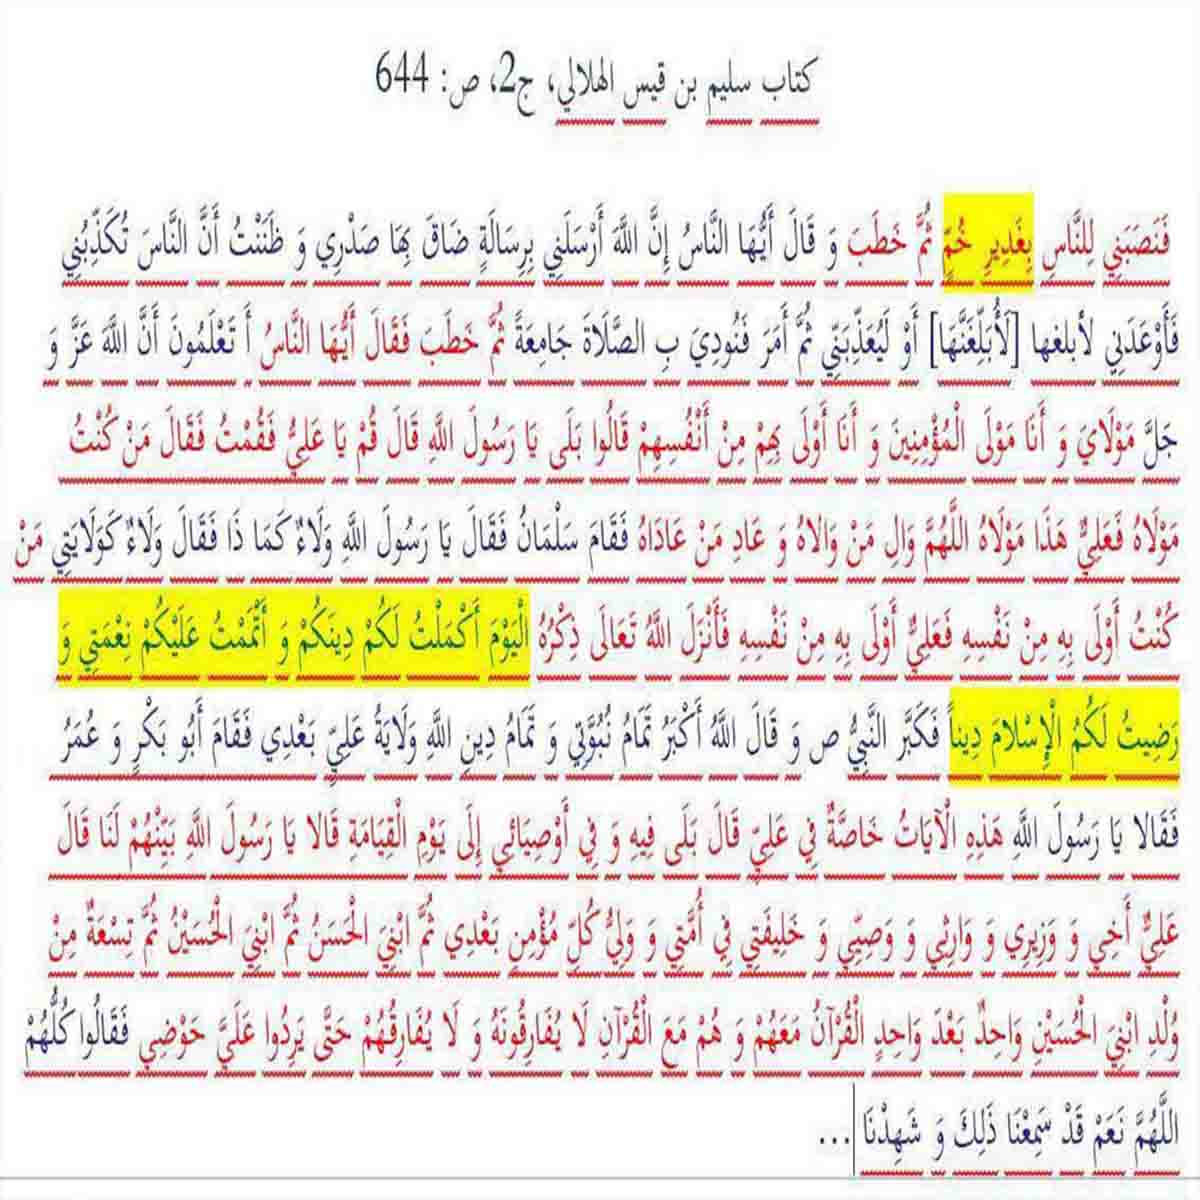 كتاب سليم بن قيس الهلالي، ج2، ص: 644
فَنَصَبَنِي لِلنَّاسِ بِغَدِيرِ خُمٍّ ثُمَّ خَطَبَ وَ قَالَ أَيُّهَا النَّاسُ إِنَّ اللَّهَ أَرْسَلَنِي بِرِسَالَةٍ ضَاقَ بِهَا صَدْرِي وَ ظَنَنْتُ أَنَّ النَّاسَ تُكَذِّبُنِي
فَأَوْعَدَنِي لأبلغها [لَأُبَلِّغَنَّهَا] أَوْ لَيُعَذِّبَنِّي ثُمَّ أَمَرَ فَنُودِيَ بِ الصَّلَاةَ جَامِعَةً ثُمَّ خَطَبَ فَقَالَ أَيُّهَا النَّاسُ أَ تَعْلَمُونَ أَنَّ اللَّهَ عَزَّ وَ
جَلَّ مَوْلَايَ وَ أَنَا مَوْلَى الْمُؤْمِنِينَ وَ أَنَا أَوْلَى بِهِمْ مِنْ أَنْفُسِهِمْ قَالُوا بَلَى يَا رَسُولَ اللَّهِ قَالَ قُمْ يَا عَلِيُّ فَقُمْتُ فَقَالَ مَنْ كُنْتُ
مَوْلَاهُ فَعَلِيٌّ هَذَا مَوْلَاهُ اللَّهُمَّ وَالِ مَنْ وَالاهُ وَ عَادِ مَنْ عَادَاهُ فَقَامَ سَلْمَانُ فَقَالَ يَا رَسُولَ اللَّهِ وَلَاءٌ كَمَا ذَا فَقَالَ وَلَاءٌ كَوَلَايَتِي مَنْ
كُنْتُ أَوْلَى بِهِ مِنْ نَفْسِهِ فَعَلِيٌّ أَوْلَى بِهِ مِنْ نَفْسِهِ فَأَنْزَلَ اللَّهُ تَعَالَى ذِكْرُهُ الْيَوْمَ أَكْمَلْتُ لَكُمْ دِينَكُمْ وَ أَتْمَمْتُ عَلَيْكُمْ نِعْمَتِي وَ
رَضِيتُ لَكُمُ الْإِسْلامَ دِيناً فَكَبَّرَ النَّبِيُّ ص وَ قَالَ اللَّهُ أَكْبَرُ تَمَامُ نُبُوَّتِي وَ تَمَامُ دِينِ اللَّهِ وَلَايَةُ عَلِيٍّ بَعْدِي فَقَامَ أَبُو بَكْرٍ وَ عُمَرُ
فَقَالا يَا رَسُولَ اللَّهِ هَذِهِ الْآيَاتُ خَاصَّةٌ فِي عَلِيٍّ قَالَ بَلَى فِيهِ وَ فِي أَوْصِيَائِي إِلَى يَوْمِ الْقِيَامَةِ قَالا يَا رَسُولَ اللَّهِ بَيِّنْهُمْ لَنَا قَالَ
عَلِيٌّ أَخِي وَ وَزِيرِي وَ وَارِثِي وَ وَصِيِّي وَ خَلِيفَتِي فِي أُمَّتِي وَ وَلِيُّ كُلِّ مُؤْمِنٍ بَعْدِي ثُمَّ ابْنِيَ الْحَسَنُ ثُمَّ ابْنِيَ الْحُسَيْنُ ثُمَّ تِسْعَةٌ مِنْ
وُلْدِ ابْنِيَ الْحُسَيْنِ وَاحِدٌ بَعْدَ وَاحِدٍ الْقُرْآنُ مَعَهُمْ وَ هُمْ مَعَ الْقُرْآنِ لَا يُفَارِقُونَهُ وَ لَا يُفَارِقُهُمْ حَتَّى يَرِدُوا عَلَيَّ حَوْضِي فَقَالُوا كُلُّهُمْ
اللَّهُمَّ نَعَمْ قَدْ سَمِعْنَا ذَلِكَ وَ شَهِدْنَا ...